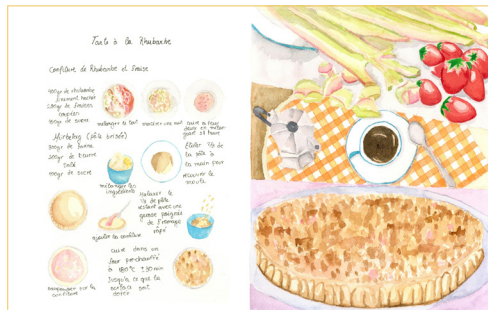 Tarte à la Rhubarbe
Confiture de Rhubarbe et fraise
400gr de rhubarbe
finement hachée
de fraises
coupées
300gr de sucre
mélanger le tout
macérer une nuit
cuire à feu
doux en
(pâte brisée)
300gr de farine
200gr de beurre
salé
100gr de sucre
mélanger les
ingrédients
Étaler 2/3 de
la pâte à
la main pour
recouvrir le
moule
Malaxer le
1/3 de pâte
restant avec une
grosse poignée
de fromage
râpé
ajouter la confiture
cuire dans un
four préchauffé
à 180°C ±30min
Jusqu'à ce que la
surface soit
dorée
par la
confiture